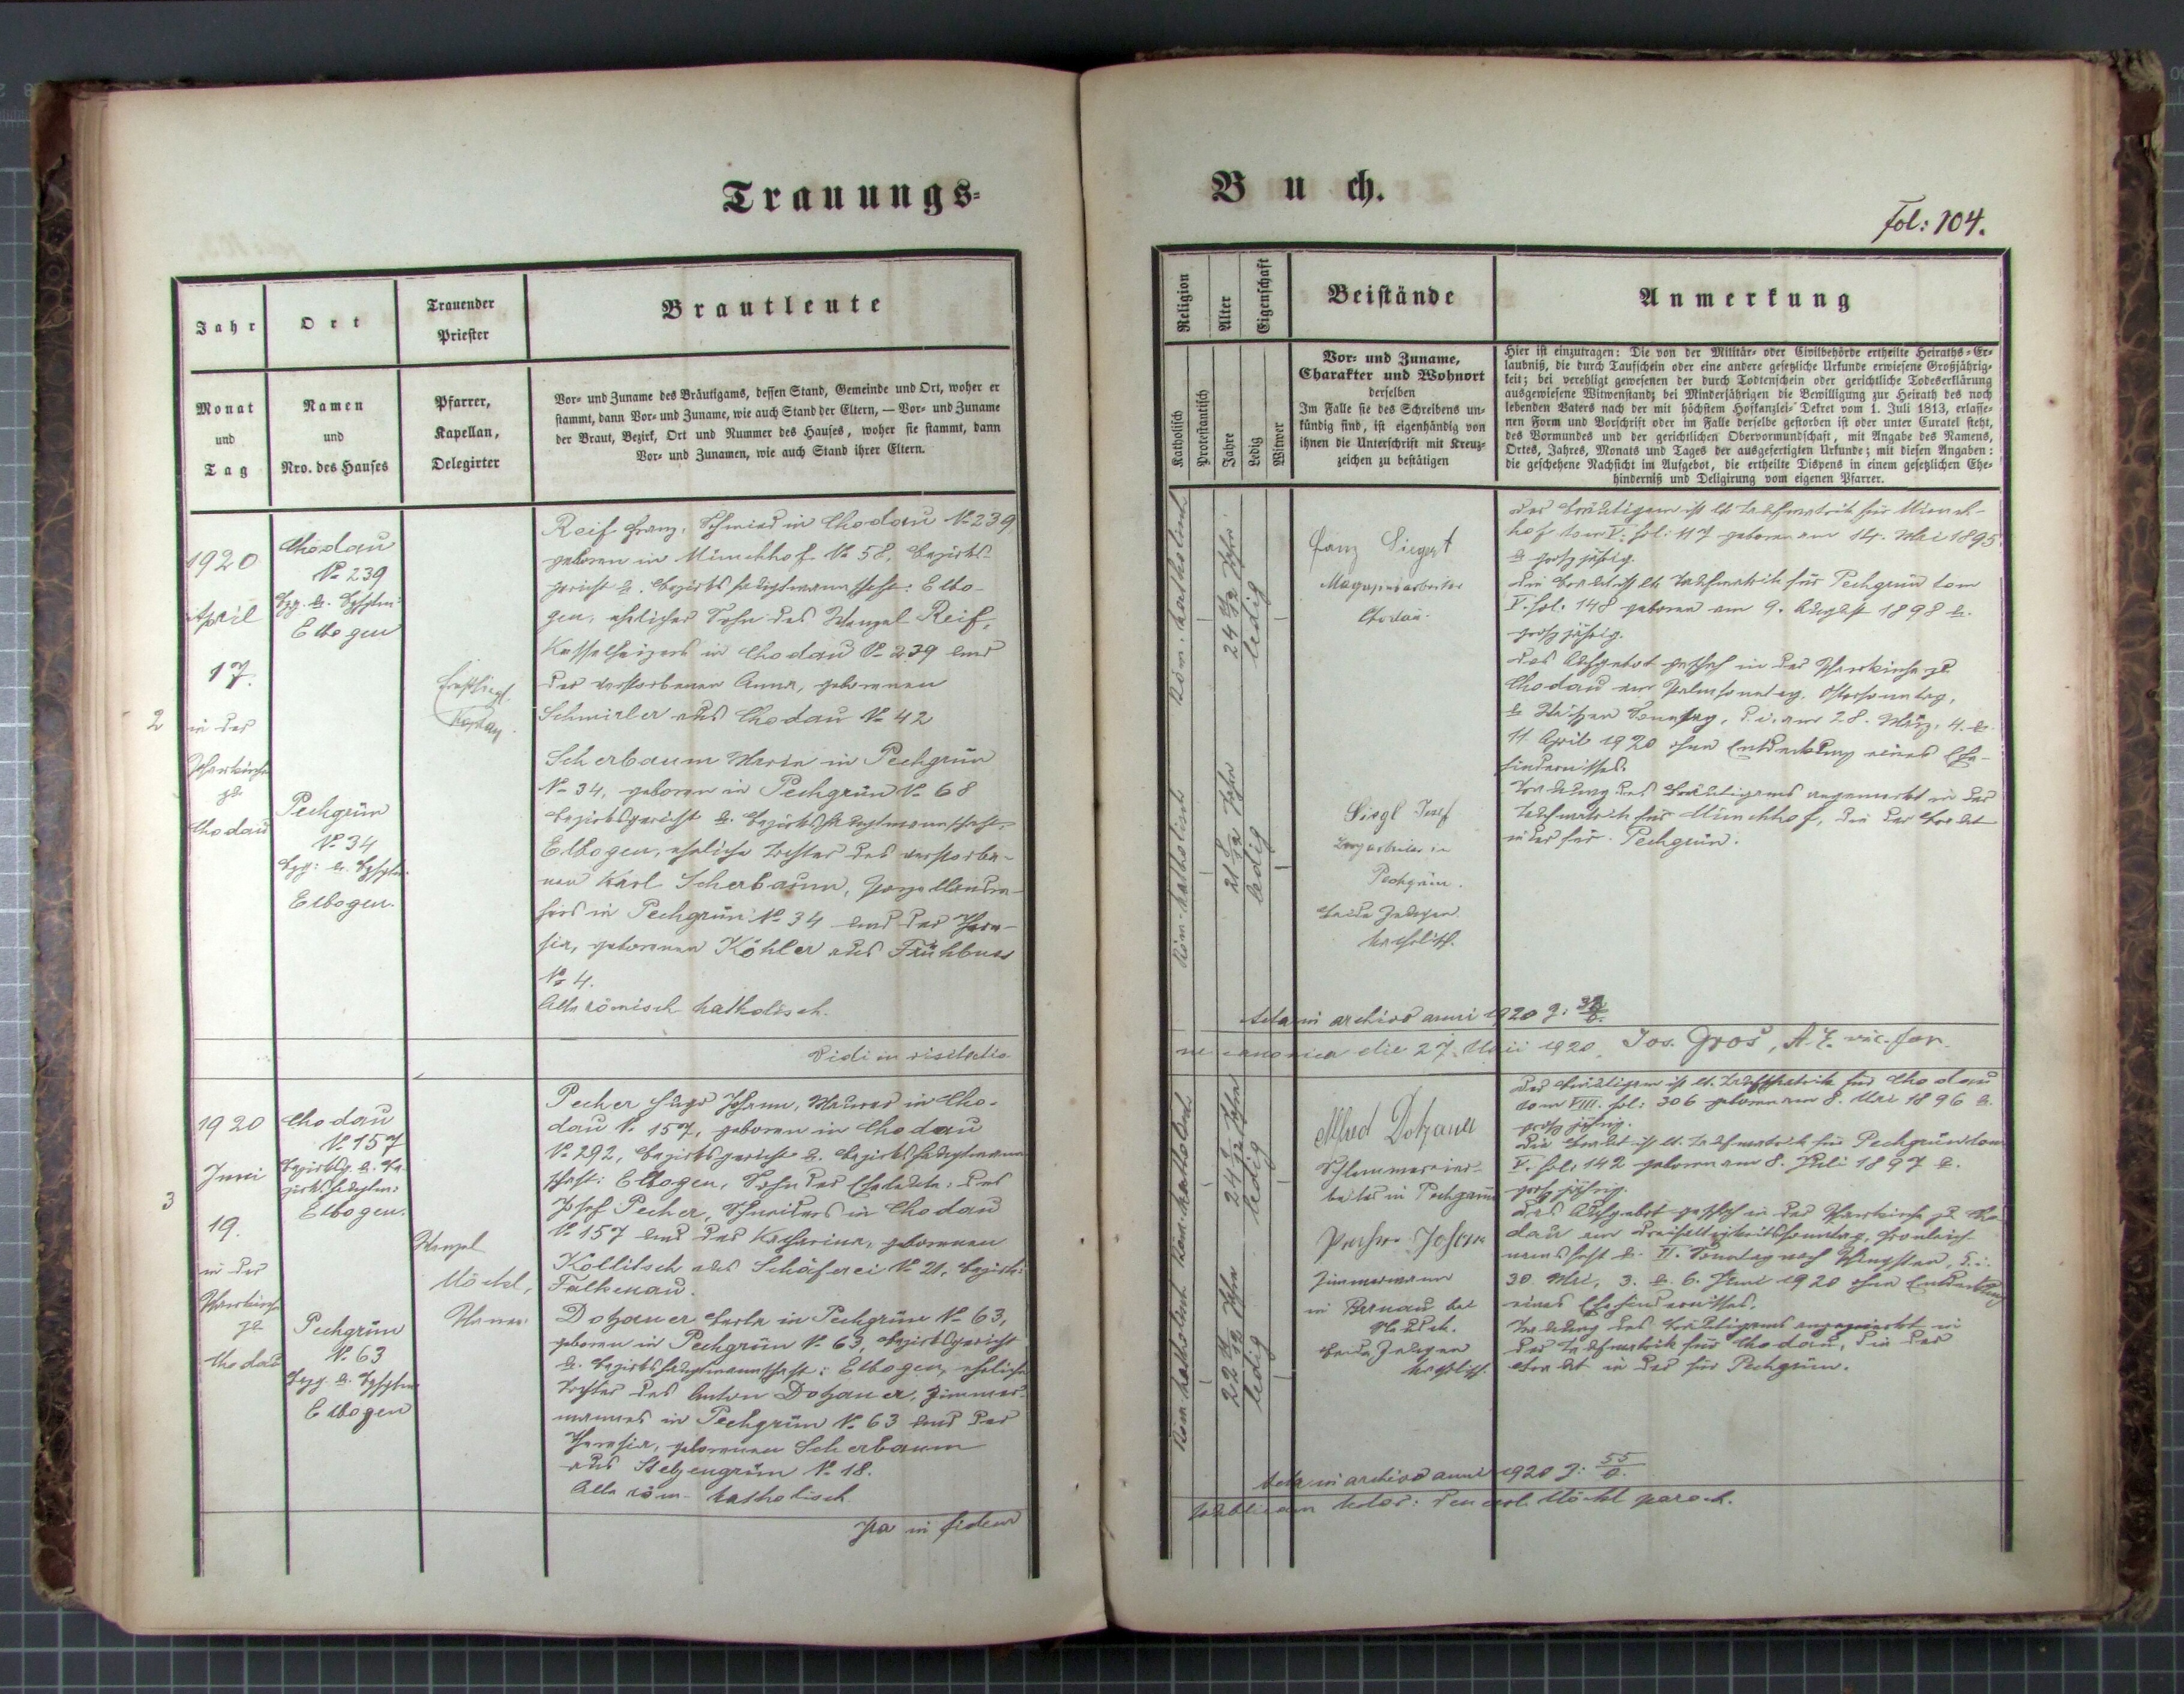 Trauungs-
Buch.
Fol: 104.
Jahr
Monat
und
Tag
Ort
Namen
und
Nro. des Hauses
Trauender
Priester
Pfarrer,
Kapellan,
Delegirter
Brautleute
Vor- und Zuname des Bräutigams, dessen Stand, Gemeinde und Ort, woher er
stammt, dann Vor- und Zuname, wie auch Stand der Eltern, — Vor- und Zuname
der Braut, Bezirk, Ort und Nummer des Hauses, woher sie stammt, dann
Vor- und Zunamen, wie auch Stand ihrer Eltern.
Religion
Katholisch
Protestantisch
Alter
Jahre
Eigenschaft
Ledig
Witwer
Beistände
Vor- und Zuname,
Charakter und Wohnort
derselben
Im Falle sie des Schreibens un-
kündig sind, ist eigenhändig von
ihnen die Unterschrift mit Kreuz-
zeichen zu bestätigen
Anmerkung
Hier ist einzutragen: Die von der Militär- oder Civilbehörde ertheilte Heiraths-Er-
laubniß, die durch Taufschein oder eine andere gesetzliche Urkunde erwiesene Großjährig-
keit; bei verehligt gewesenen der durch Todtenschein oder gerichtliche Todeserklärung
ausgewiesene Witwenstand; bei Minderjährigen die Bewilligung zur Heirath des noch
lebenden Vaters nach der mit höchstem Hofkanzlei-Dekret vom 1. Juli 1813, erlasse-
nen Form und Vorschrift oder im Falle derselbe gestorben ist oder unter Curatel steht,
des Vormundes und der gerichtlichen Obervormundschaft, mit Angabe des Namens,
Ortes, Jahres, Monats und Tages der ausgefertigten Urkunde; mit diesen Angaben:
die geschehene Nachsicht im Aufgebot, die ertheilte Dispens in einem gesetzlichen Ehe-
hinderniß und Deligirung vom eigenen Pfarrer.
2
1920
April
17.
in der
Pfarrkirche
zu
Chodau
Chodau
No 239
Elbogen
Pechgrün
No 34
Elbogen.
Reif Franz, Schmied in Chodau No 239,
geboren in Münchhof No 58, Bezirks-
gericht u. Bezirkshauptmannschaft: Elbo-
gen, ehelicher Sohn des Wenzel Reif,
Kesselheizers in Chodau No 239 und
der verstorbenen Anna, geborenen
Schmirler aus Chodau No 42
Scherbaum Marie in Pechgrün
No 34, geboren in Pechgrün No 68
Bezirksgericht u. Bezirkshauptmannschaft,
Elbogen, eheliche Tochter des verstorbe-
nen Karl Scherbaum, Porzellandre-
hers in Pechgrün No 34 und der There-
sia, geborenen Köhler aus Frühbuss
No 4.
Alle römisch katholisch.
Röm. katholisch
24 Jahre
ledig
Röm.-katholisch
21 Jahre
ledig
Franz Siegert
Magazinsarbeiter
Chodau.
Siegl Josef
Bergarbeiter in
Pechgrün.
Beide Zeugen
katholisch.
Der Bräutigam ist lt. Taufmatrik für Münch-
hof tom V. fol: 117 geboren am 14. Mai 1895
u. großjährig.
Die Braut ist lt. Taufmatrik für Pechgrün tom
V. fol. 148 geboren am 9. August 1898 u.
großjährig.
Das Aufgebot geschah in der Pfarrkirche zu
Chodau am Palmsonntag, Ostersonntag,
u. Weißen Sonntag, d. i. am 28. März, 4. u.
11 April 1920 ohne Entdeckung eines Ehe-
hindernisses.
Trauung des Bräutigams angemerkt in der
Taufmatrik für Münchhof, die der Braut
in der für Pechgrün.
Acta in archivo anni 1920
Vidi in visitatio
ne canonica die 27. Maii 1920. Jos. Gros, A. E. vic. for.
3
1920
Juni
19.
in der
Pfarrkirche
zu
Chodau
Chodau
No 157
Elbogen.
Pechgrün
No 63
Elbogen
Wenzel
Möckl,
Pecher Hugo Johann, Maurer in Cho-
dau No 157, geboren in Chodau
No 292, Bezirksgericht u. Bezirkshauptmann
schaft: Elbogen, Sohn der Eheleute: des
Josef Pecher, Schneiders in Chodau
No 157 und der Katharina, geborenen
Kollitsch aus Schäferei No 21, Bezirk:
Falkenau.
Dotzauer Berta in Pechgrün No 63,
geboren in Pechgrün No 63, Bezirksgericht
u. Bezirkshauptmannschaft: Elbogen, eheliche
Tochter des Anton Dotzauer, Zimmer-
mannes in Pechgrün No 63 und der
Theresia, geborenen Scherbaum
aus Stelzengrün No 18.
Alle röm- katholisch
Röm. katholisch
24 Jahre
ledig
Röm. katholisch
22 Jahre
ledig
Alfred Dotzauer
in Pechgrün
Zimmermann
Beide Zeugen
katholisch.
Der Bräutigam ist lt. Taufmatrik für Chodau
tom VIII. fol: 306 geboren am 8. Mai 1896 u.
großjährig.
Die Braut ist lt. Taufmatrik für Pechgrün tom
V. fol: 142 geboren am 8. Juli 1897 u.
großjährig.
Das Aufgebot geschah in der Pfarrkirche zu Cho
dau am Dreifaltigkeitssonntag, Fronleich-
namsfest u. II. Sonntag nach Pfingsten, d. i.
30. Mai, 3. u. 6. Juni 1920 ohne Entdeckung
eines Ehehindernisses.
Trauung des Bräutigams angemerkt in
der Taufmatrik für Chodau, die der
Braut in der für Pechgrün.
Acta in archivo anni 1920 J: 55
Ita in fidem
Möckl paroch.